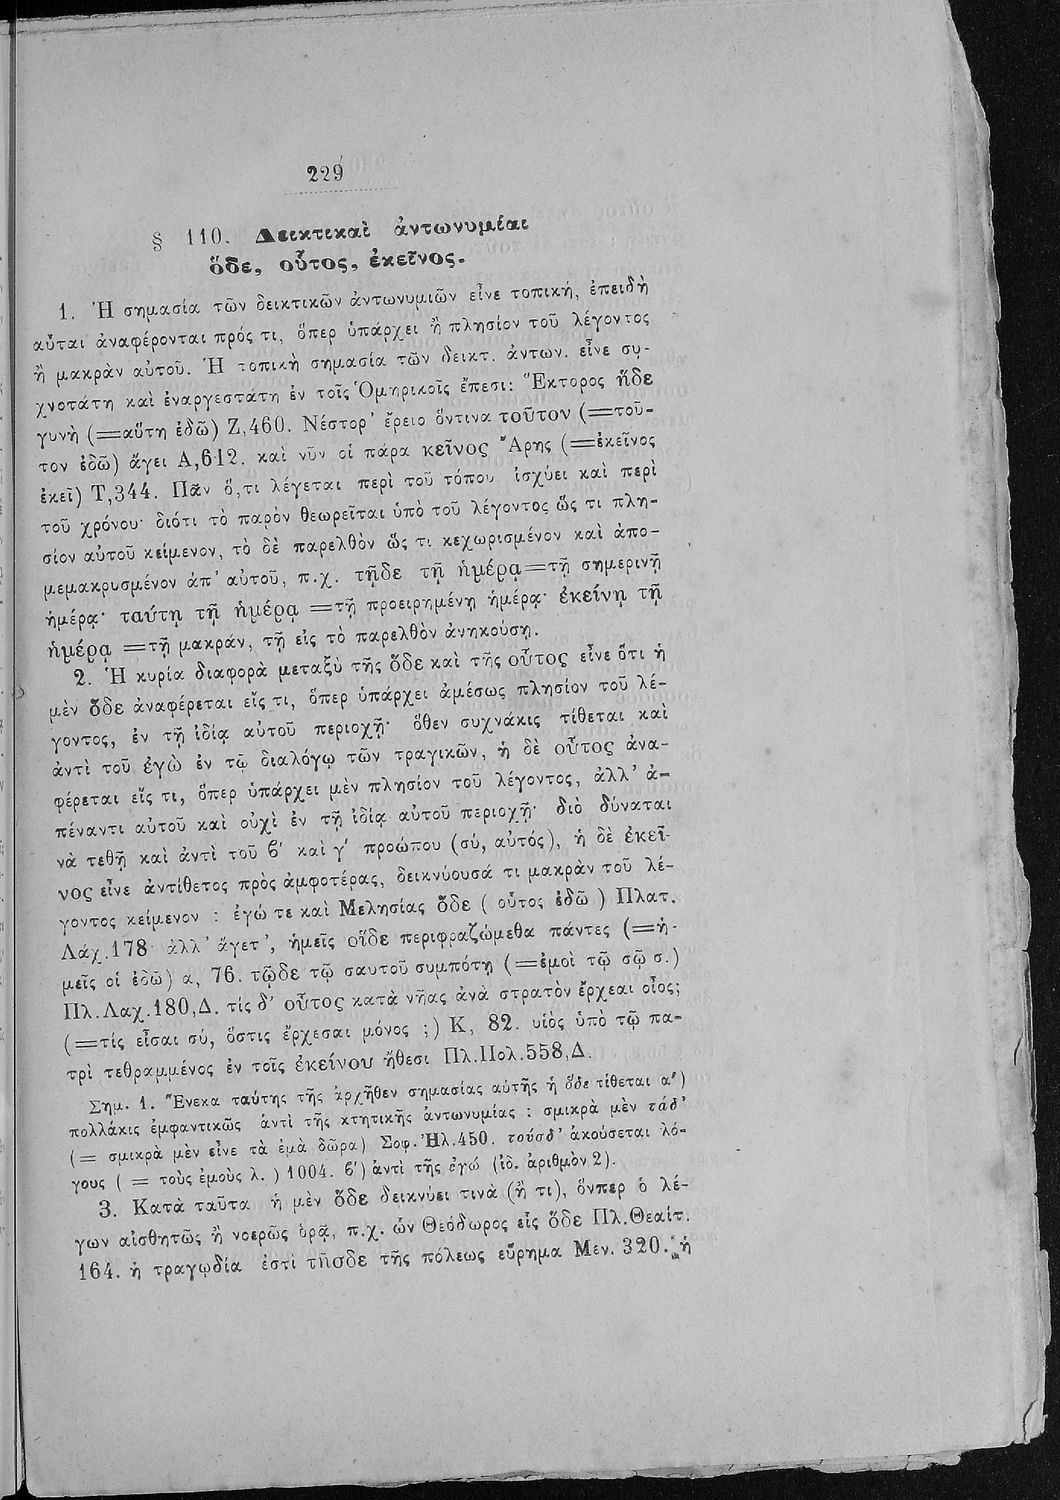 229
§ 110. Δεικτικαὶ ἀντωνυμίαι
ὅδε, οὗτος, ἐκεῖνος.
1. Ἡ σημασία τῶν δεικτικῶν ἀντωνυμιῶν εἶνε τοπική, ἐπειδὴ
αὗται ἀναφέρονται πρός τι, ὅπερ ὑπάρχει ἢ πλησίον τοῦ λέγοντος
ἢ μακρὰν αὐτοῦ. Ἡ τοπικὴ σημασία τῶν δεικτ. ἀντων. εἶνε συ-
χνοτάτη καὶ ἐναργεστάτη ἐν τοῖς Ὁμηρικοῖς ἔπεσι: Ἕκτορος ἥδε
γυνὴ (=αὕτη ἐδῶ) Ζ,460. Νέστορ' ἔρειο ὅντινα τοῦτον (=τοῦ-
τον ἐδῶ) ἄγει Α,612. καὶ νῦν οἱ πάρα κεῖνος Ἄρης (=ἐκεῖνος
ἐκεῖ) Τ,344. Πᾶν ὅ,τι λέγεται περὶ τοῦ τόπου ἰσχύει καὶ περὶ
τοῦ χρόνου· διότι τὸ παρὸν θεωρεῖται ὑπὸ τοῦ λέγοντος ὥς τι πλη-
σίον αὐτοῦ κείμενον, τὸ δὲ παρελθὸν ὥς τι κεχωρισμένον καὶ ἀπο-
μεμακρυσμένον ἀπ' αὐτοῦ, π.χ. τῇδε τῇ ἡμέρᾳ=τῇ σημερινῇ
ἡμέρᾳ· ταύτῃ τῇ ἡμέρᾳ =τῇ προειρημένῃ ἡμέρᾳ· ἐκείνῃ τῇ
ἡμέρᾳ =τῇ μακράν, τῇ εἰς τὸ παρελθὸν ἀνηκούσῃ.
2. Ἡ κυρία διαφορὰ μεταξὺ τῆς ὅδε καὶ τῆς οὗτος εἶνε ὅτι ἡ
μὲν ὅδε ἀναφέρεται εἴς τι, ὅπερ ὑπάρχει ἀμέσως πλησίον τοῦ λέ-
γοντος, ἐν τῇ ἰδίᾳ αὐτοῦ περιοχῇ· ὅθεν συχνάκις τίθεται καὶ
ἀντὶ τοῦ ἐγὼ ἐν τῷ διαλόγῳ τῶν τραγικῶν, ἡ δὲ οὗτος ἀνα-
φέρεται εἴς τι, ὅπερ ὑπάρχει μὲν πλησίον τοῦ λέγοντος, ἀλλ' ἀ-
πέναντι αὐτοῦ καὶ οὐχὶ ἐν τῇ ἰδίᾳ αὐτοῦ περιοχῇ· διὸ δύναται
νὰ τεθῇ καὶ ἀντὶ τοῦ β' καὶ γ' προώπου (σύ, αὐτός), ἡ δὲ ἐκεῖ-
νος εἶνε ἀντίθετος πρὸς ἀμφοτέρας, δεικνύουσά τι μακρὰν τοῦ λέ-
γοντος κείμενον : ἐγώ τε καὶ Μελησίας ὅδε ( οὗτος ἐδῶ ) Πλατ.
Λάχ.178· ἀλλ' ἄγετ', ἡμεῖς οἵδε περιφραζώμεθα πάντες (=ἡ-
μεῖς οἱ ἐδῶ) α, 76. τῷδε τῷ σαυτοῦ συμπότῃ (=ἐμοὶ τῷ σῷ σ.)
Πλ.Λαχ.180,Δ. τίς δ' οὗτος κατὰ νῆας ἀνὰ στρατὸν ἔρχεαι οἶος;
(=τίς εἶσαι σύ, ὅστις ἔρχεσαι μόνος ;) Κ, 82. υἱὸς ὑπὸ τῷ πα-
τρὶ τεθραμμένος ἐν τοῖς ἐκείνου ἤθεσι Πλ.Πολ.558,Δ.
Σημ. 1. Ἕνεκα ταύτης τῆς ἀρχῆθεν σημασίας αὐτῆς ἡ ὅδε τίθεται α')
πολλάκις ἐμφαντικῶς ἀντὶ τῆς κτητικῆς ἀντωνυμίας : σμικρὰ μὲν τάδ'
(= σμικρὰ μὲν εἶνε τὰ ἐμὰ δῶρα) Σοφ.Ἠλ.450. τούσδ' ἀκούσεται λό-
γους ( = τοὺς ἐμοὺς λ. ) 1004. β') ἀντὶ τῆς ἐγώ (ἰδ. ἀριθμὸν 2).
3. Κατὰ ταῦτα ἡ μὲν ὅδε δεικνύει τινὰ (ἤ τι), ὅνπερ ὁ λέ-
γων αἰσθητῶς ἢ νοερῶς ὁρᾷ, π.χ. ὧν Θεόδωρος εἷς ὅδε Πλ.Θεαίτ.
164. ἡ τραγῳδία ἐστὶ τῆσδε τῆς πόλεως εὕρημα Μεν. 320. ἡ